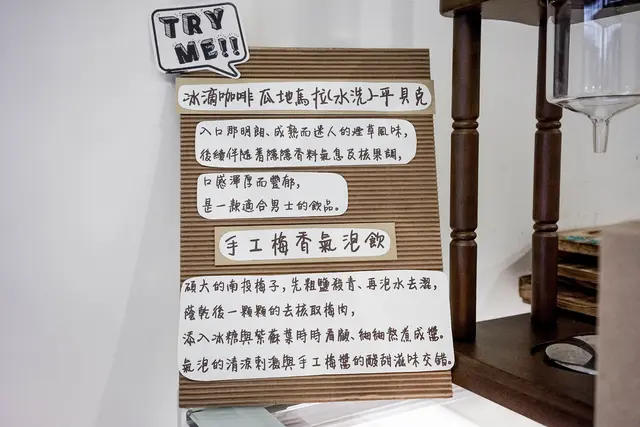 TRY
ME!!
冰滴咖啡 瓜地馬拉(水洗)-平貝克
入口那明朗、成熟而迷人的煙草風味,
後續伴隨著隱隱香料氣息及核果調,
口感渾厚而豐郁,
是一款適合男士的飲品。
手工梅香氣泡飲
碩大的南投梅子,先粗鹽殺青、再泡水去澀,
陰乾後一顆顆的去核取梅肉,
添入冰糖與紫蘇葉時時看顧、細細熬煮成醬。
氣泡的清涼刺激與手工梅醬的酸甜滋味交錯。